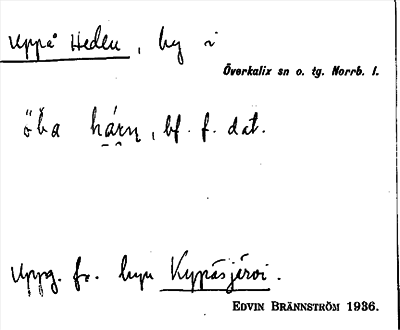 Uppå Heden, by i
Överkalix sn o. tg. Norrb. l.
öba hárn, bf. f. dat.
Uppg. fr. byn Kyppåsjärvi.
EDVIN BRÄNNSTRÖM 1936.